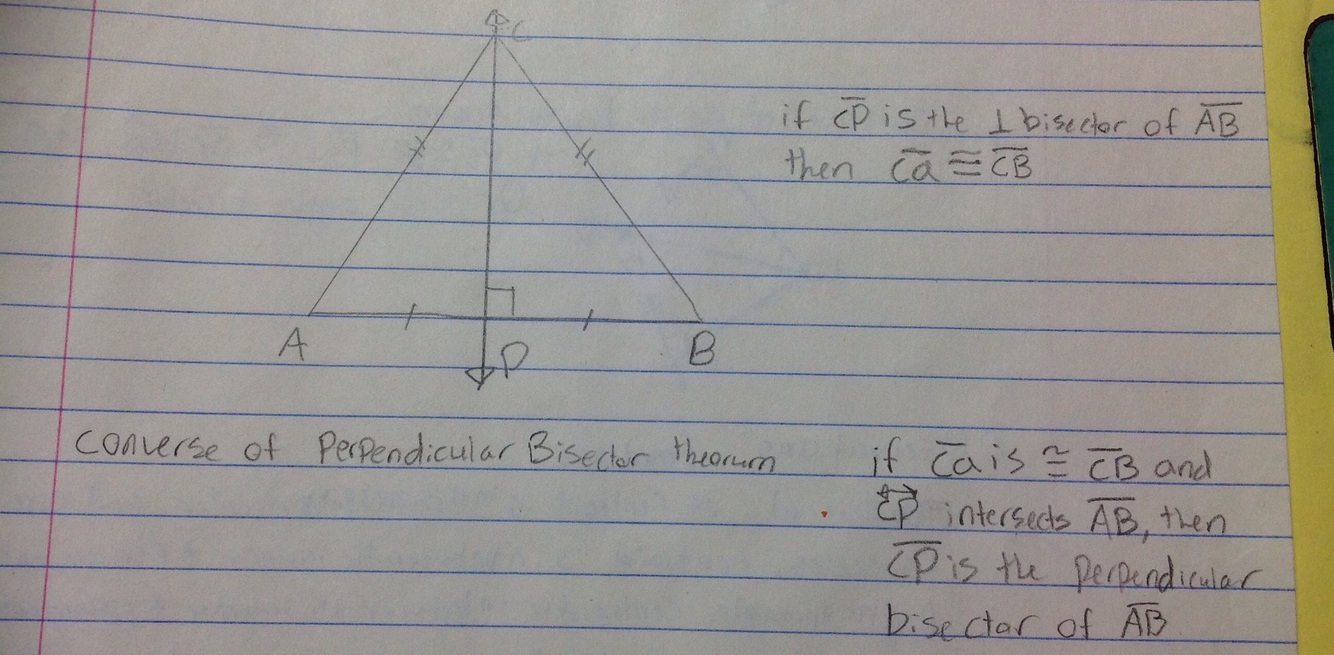 C
if C̅P̅ is the ⊥ bisector of A̅B̅
then C̅a̅ ≅ C̅B̅
A
P
B
converse of Perpendicular Bisector theorum
if C̅a̅ is ≅ C̅B̅ and
C͍P͍ intersects A̅B̅, then
C̅P̅ is the perpendicular
bisector of A̅B̅